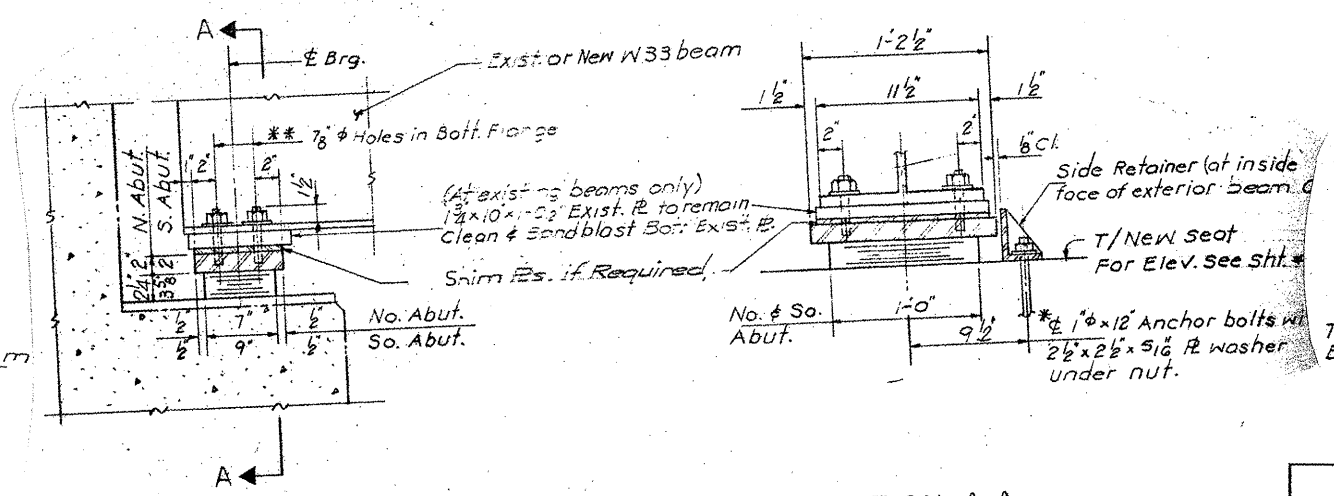 A
℄ Brg.
Exist. or New W33 beam
** 7/8" φ Holes in Bott. Flange
N. Abut.
S. Abut.
1"
2"
2"
1 1/2"
(At existing beams only)
Exist. ℞ to remain
Clean & Sandblast Bott. Exist. ℞.
Shim ℞s. if Required
1/2"
7"
1/2"
No. Abut.
1/2"
9"
1/2"
So. Abut.
A
1'-2 1/2"
1 1/2"
11 1/2"
1 1/2"
2"
2"
1/8" Cl.
Side Retainer (at inside
face of exterior beam
T/New Seat
For Elev. See Sht.
No. & So.
Abut.
1'-0"
9 1/2"
*℄ 1"φ x 12" Anchor bolts
2 1/2" x 2 1/2" x 5/16" ℞ washer
under nut.